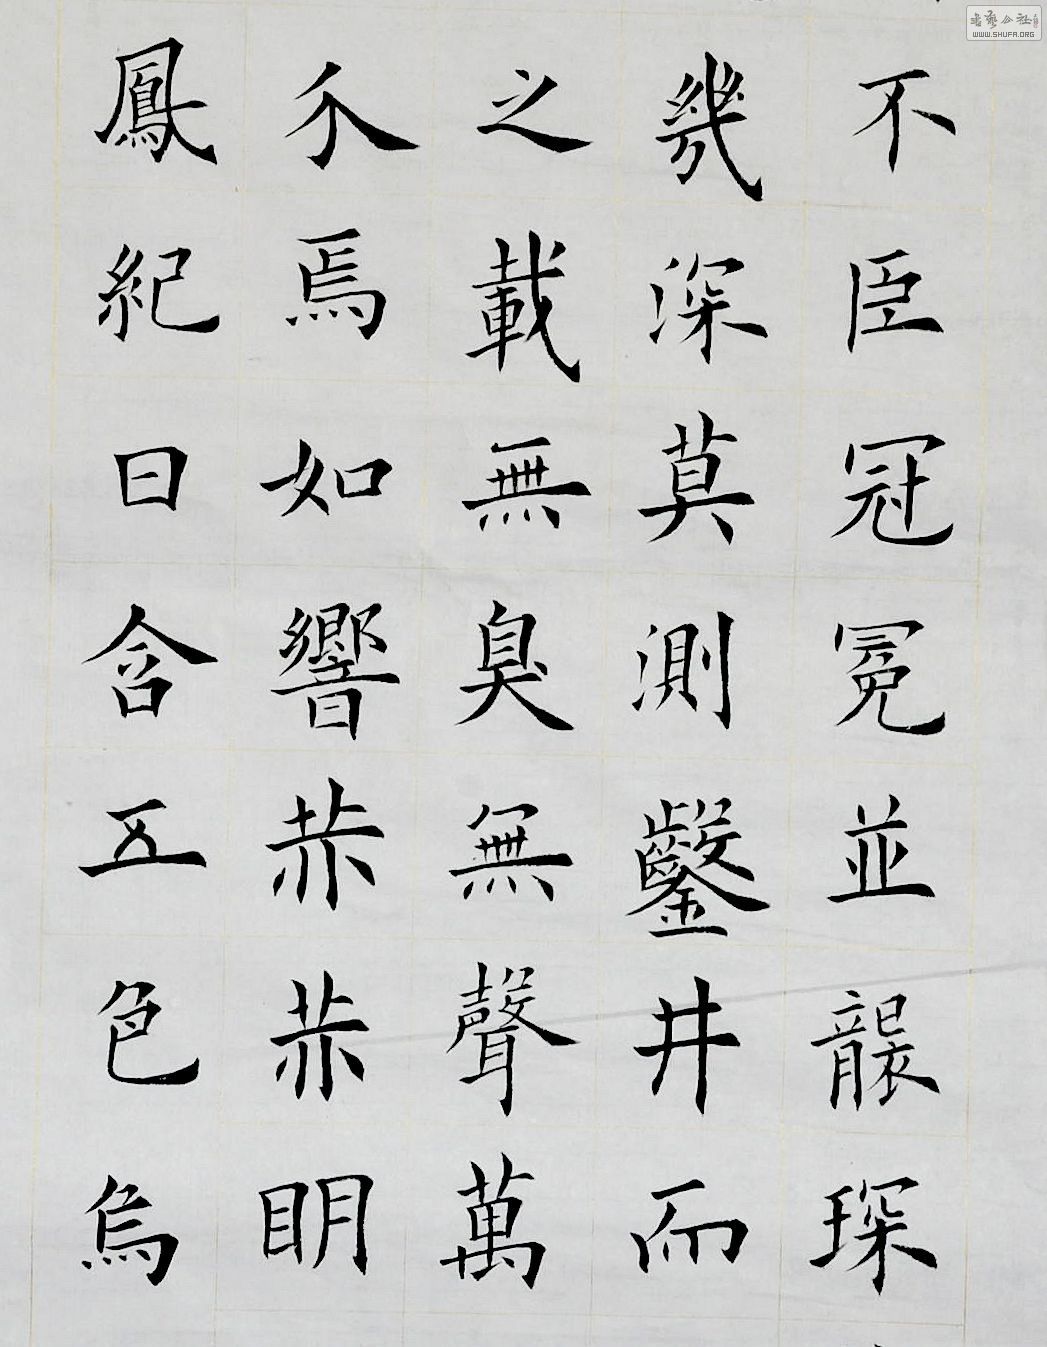 不臣冠冕並襲琛
幾深莫測鑿井而
之載無臭無聲萬
介焉如響赫赫眀
鳳紀日含五色烏
書藝公社
WWW.SHUFA.ORG